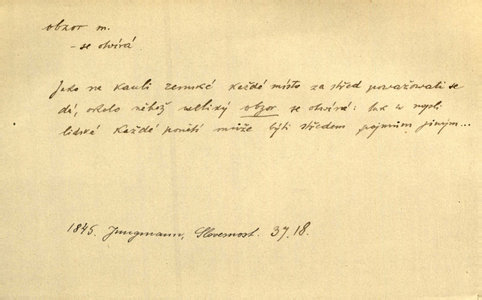 obzor m.
- se otvírá
Jako na kauli zemské každé místo za střed považovati se
dá, okolo něhož veliký obzor se otvírá: tak w mysli
lidské každé ponětí může býti středem pojmům jiným...
1845. Jungmann, Slovesnost. 37.18.